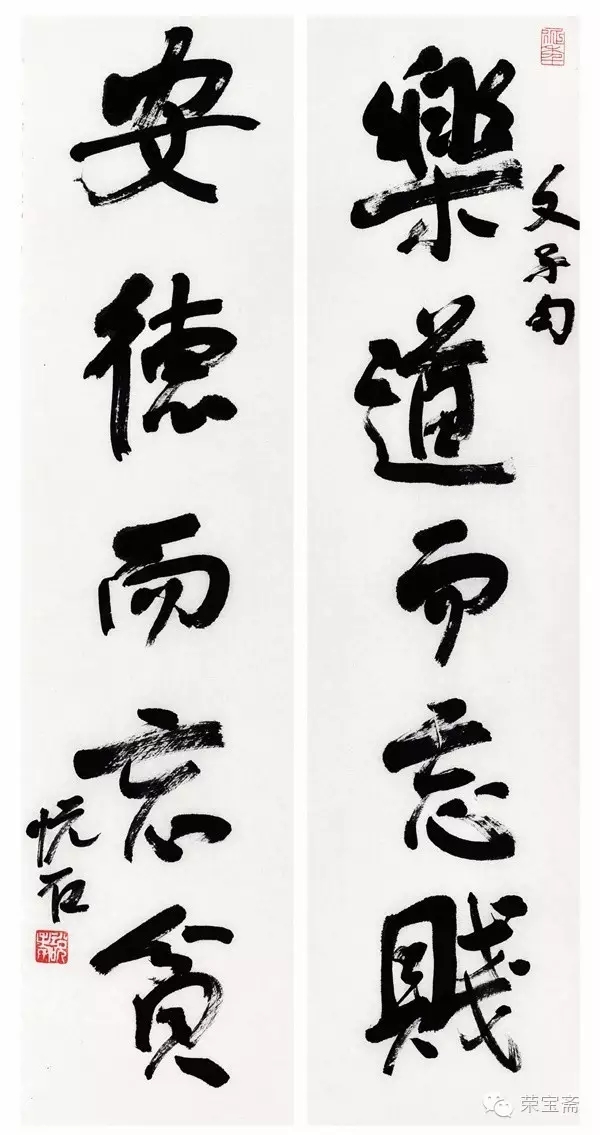 樂道而忘賤
文子句
安德而忘貧
悦石
荣宝斋